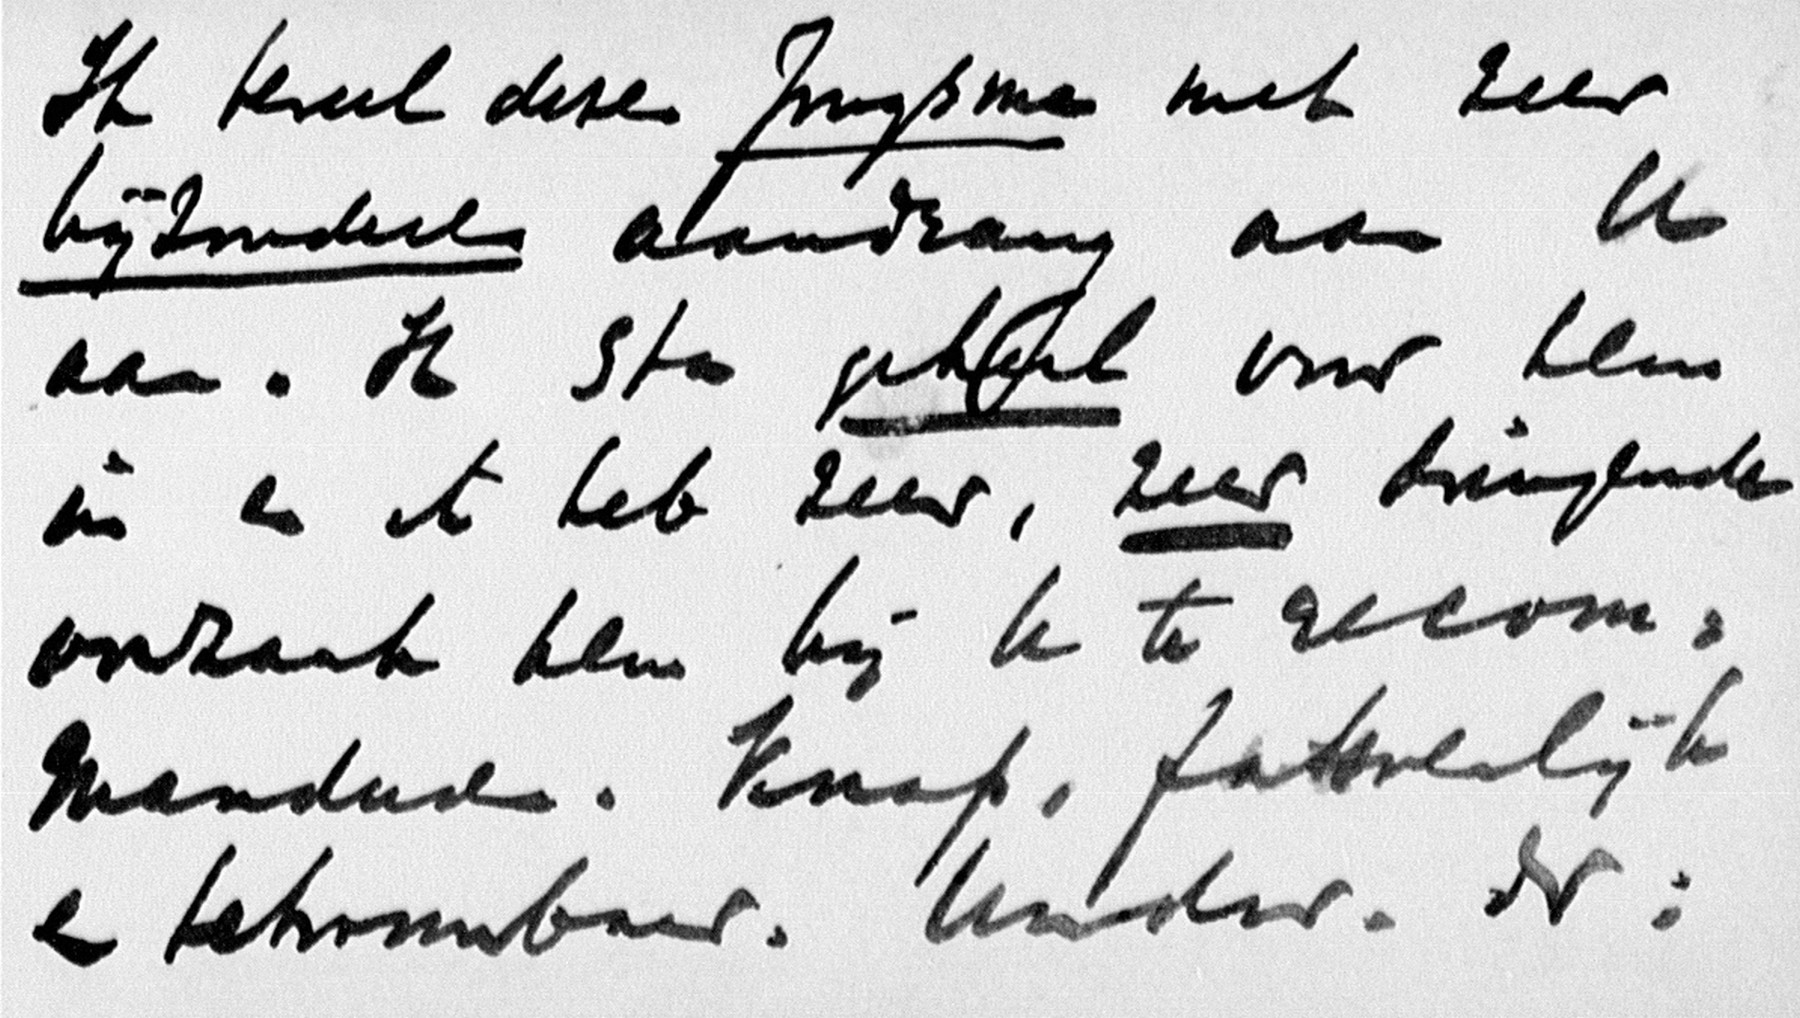 Ik beveel deze Jongsma met zeer
bijzondere aandrang aan U
aan. Ik sta geheel voor hem
in en ik heb zeer, zeer dringende
oorzaak hem bij U te recom-
mandeeren. Knap, fatsoenlijk
en betrouwbaar.